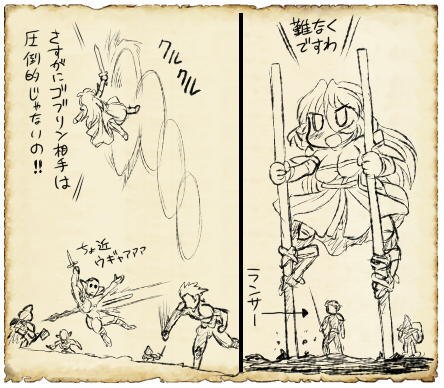 さすがにゴブリン相手は
圧倒的じゃないの!!
クルクル
ちょ近
ウギャアアア
難なく
ですわ
ランサー